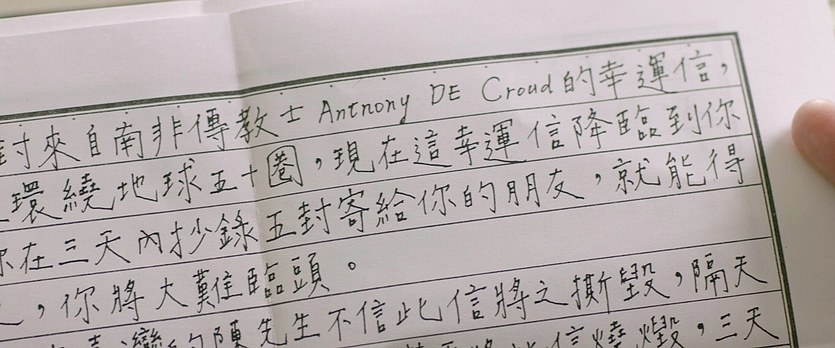 封來自南非傳教士 Antnony DE Croud 的幸運信，
環繞地球五十圈，現在這幸運信降臨到你
你在三天內抄錄五封寄給你的朋友，就能得
，你將大難臨頭。
陳先生不信此信將之撕毀，隔天
此信燒燬。三天